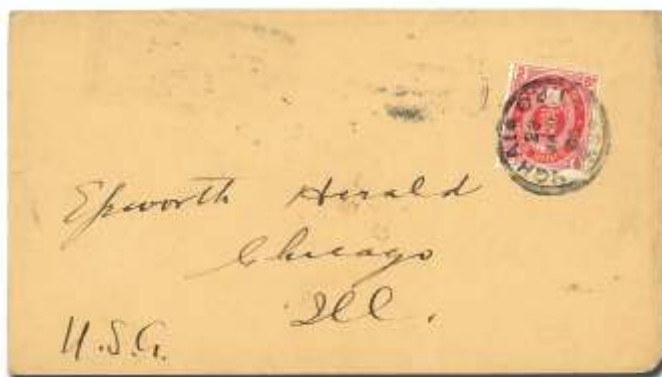 Epworth Herald
Chicago
Ill.
U.S.A.